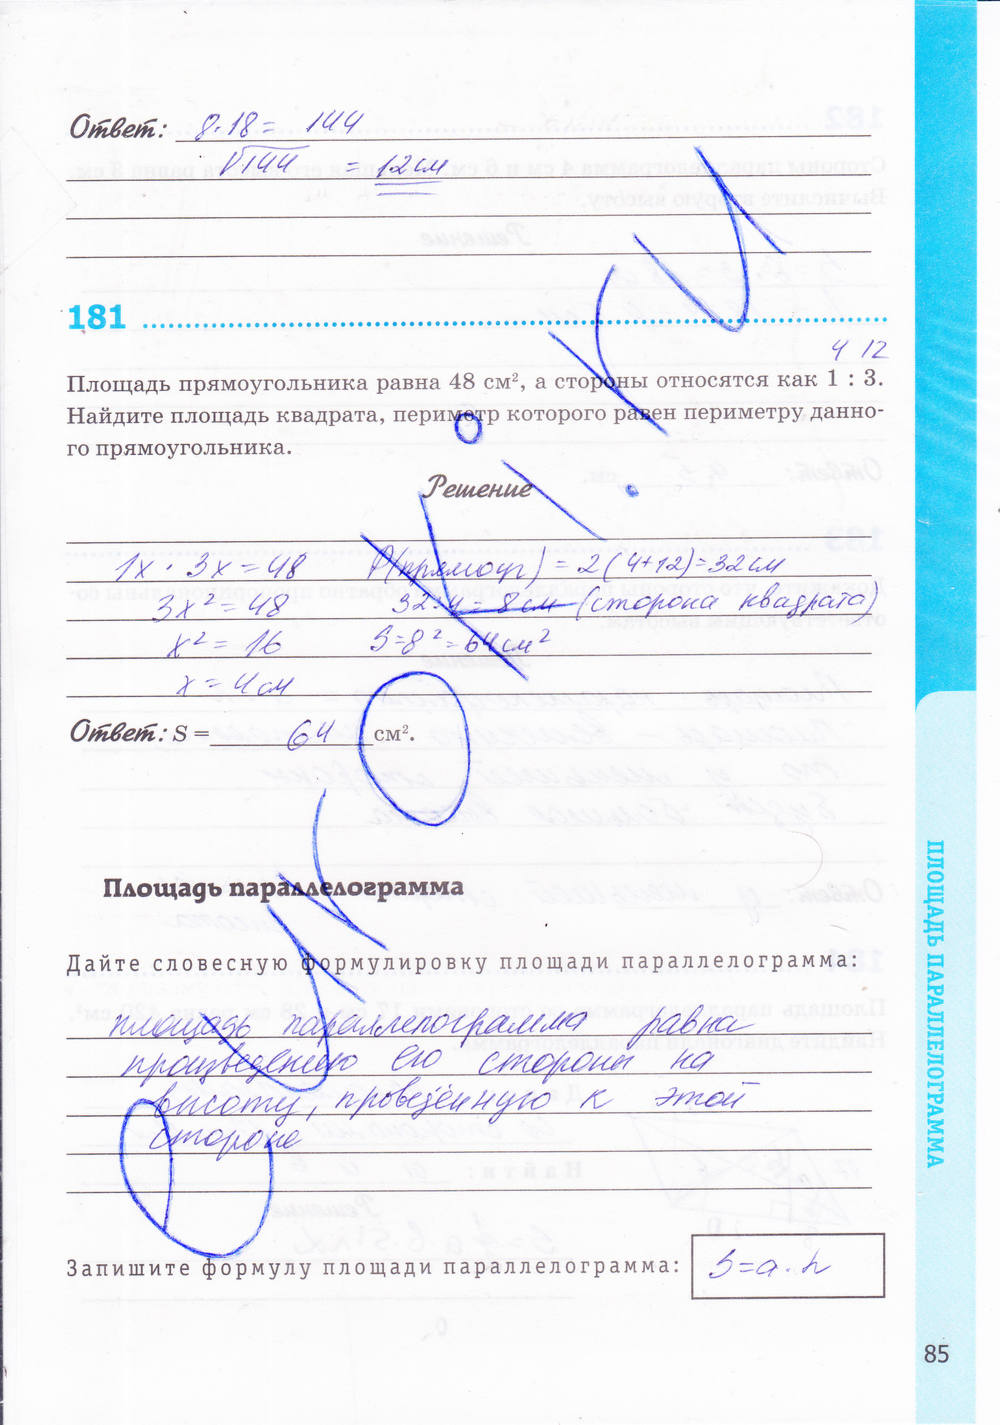 Ответ: 8·18 = 144
√144 = 12 см
181
4 12
Площадь прямоугольника равна 48 см², а стороны относятся как 1 : 3.
Найдите площадь квадрата, периметр которого равен периметру данно-
го прямоугольника.
Решение
1x · 3x = 48 P(прямоуг) = 2(4+12)=32 см
3x² = 48 32:4 = 8 см (сторона квадрата)
x² = 16 S=8²=64 см²
x = 4 см
Ответ: S = 64 см².
Площадь параллелограмма
Дайте словесную формулировку площади параллелограмма:
площадь параллелограмма равна
произведению его стороны на
высоту, проведённую к этой
стороне
Запишите формулу площади параллелограмма: S=a·h
ПЛОЩАДЬ ПАРАЛЛЕЛОГРАММА
85